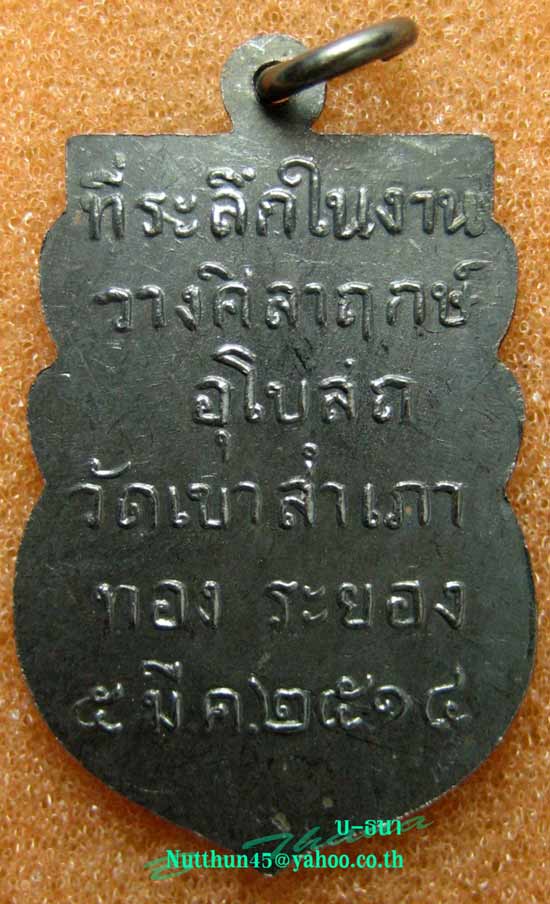 ที่ระลึกในงาน
วางศิลาฤกษ์
อุโบสถ
วัดเขาสำเภา
ทอง ระยอง
๕ มี.ค.๒๕๑๔
บ-ธนา
Nutthun45@yahoo.co.th